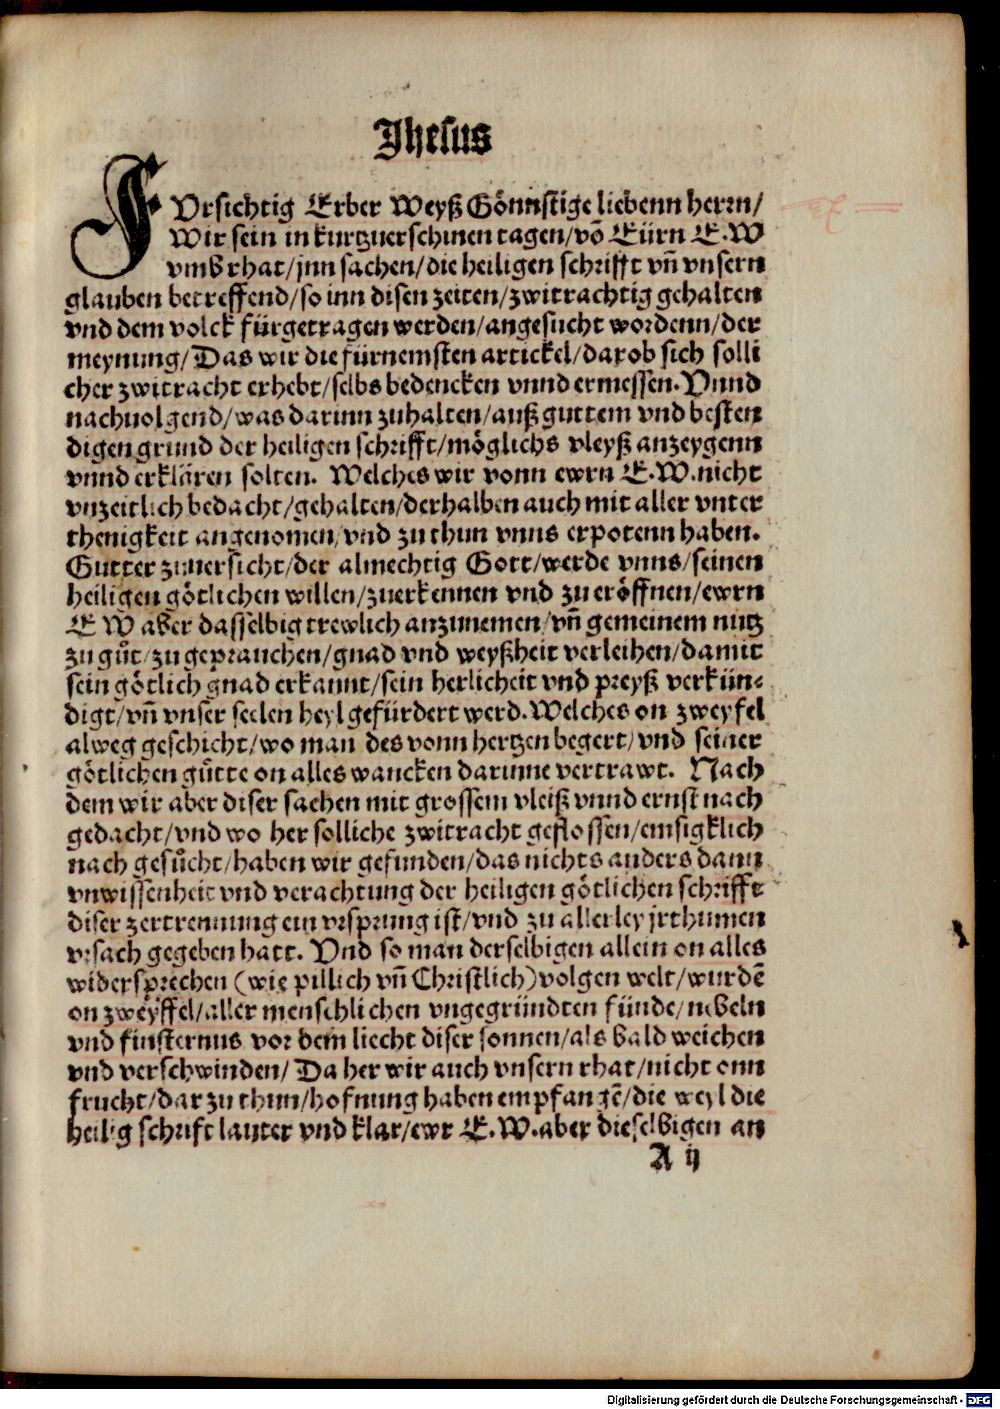 Jhesus
FVrsichtig Erber Weyß Gönnstige liebenn herrn/
Wir sein in kurtzuerschinen tagen/võ Eürn E.W
vmb rhat/jnn sachen/die heiligen schrifft vñ vnsern
glauben betreffend/so inn disen zeiten/zwitrachtig gehalten
vnd dem volck fürgetragen werden/angesucht wordenn/der
meynung/Das wir die fürnemsten artickel/darob sich solli
cher zwitracht erhebt/selbs bedencken vnnd ermessen. Vnnd
nachuolgend/was darinn zuhalten/auß guttem vnd besten
digen grund der heiligen schrifft/möglichs vleyß anzeygenn
vnnd erklären solten. Welches wir vonn ewrn E.W.nicht
vnzeitlich bedacht/gehalten/derhalben auch mit aller vnter
thenigkeit angenomen/vnd zu thun vnns erpotenn haben.
Gutter zuuersicht/der almechtig Gott/werde vnns/seinen
heiligen götlichen willen/zuerkennen vnd zu eröffnen/ewrn
E W aber dasselbig trewlich anzunemen/vñ gemeinem nutz
zu gůt/zu geprauchen/gnad vnd weyßheit verleihen/damit
sein götlich gnad erkannt/sein herlicheit vnd preyß verkün⸗
digt/vñ vnser seelen heyl gefürdert werd.Welches on zweyfel
alweg geschicht/wo man des vonn hertzen begert/vnd seiner
götlichen gůtte on alles wancken darinne vertrawt. Nach
dem wir aber diser sachen mit grossem vleiß vnnd ernst nach
gedacht/vnd wo her solliche zwitracht geflossen/emsigklich
nach gesůcht/haben wir gefunden/das nichts anders dann
vnwissenheit vnd verachtung der heiligen götlichen schrifft
diser zertrennung ein vrsprung ist/vnd zu allerley jrthumen
vrsach gegeben hatt. Vnd so man derselbigen allein on alles
widersprechen (wie pillich vñ Christlich)volgen welt/wurdẽ
on zweyffel/aller menschlichen vngegründten fünde/nebeln
vnd finsternus vor dem liecht diser sonnen/als bald weichen
vnd verschwinden/ Da her wir auch vnsern rhat/nicht onn
frucht/dar zu thun/hofnung haben empfangẽ/die weyl die
heilig schrift lauter vnd klar/ewr E.W.aber dieselbigen an
A ij
Digitalisierung gefördert durch die Deutsche Forschungsgemeinschaft - DFG